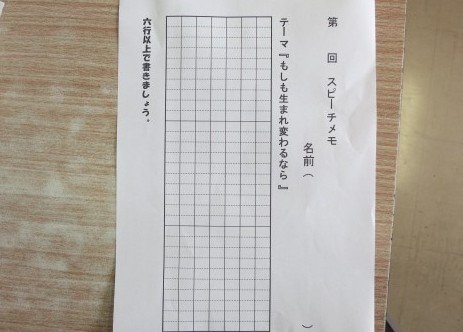 第　回　スピーチメモ
名前（　　）
テーマ『もしも生まれ変わるなら』
六行以上で書きましょう。